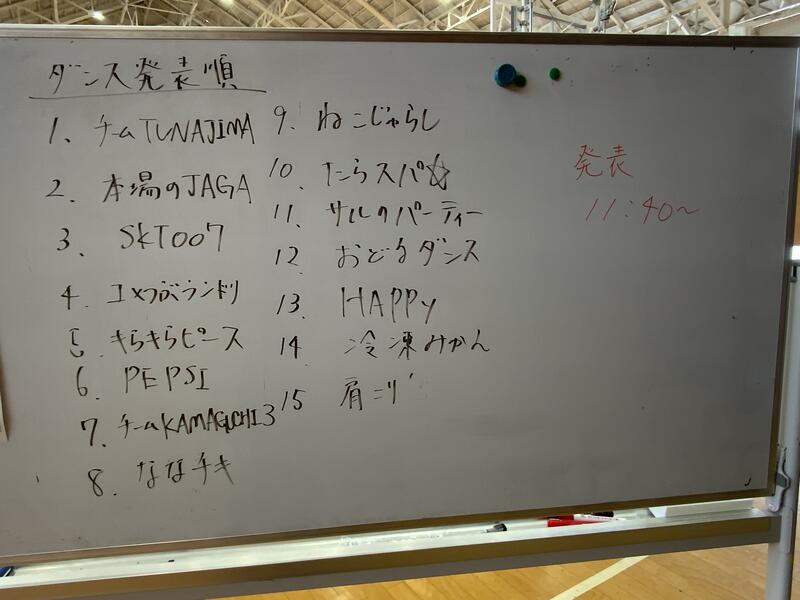 ダンス発表順
1. チームTUNAJIMA
2. 本場のJAGA
3. SKT007
4. コメつぶランドリ
5. きらきらピース
6. PEPSI
7. チームKAMAGUCHI3
8. ななチキ
9. ねこじゃらし
10. たらスパ☆
11. サルのパーティー
12. おどるダンス
13. HAPPy
14. 冷凍みかん
15 肩こり
発表
11:40〜